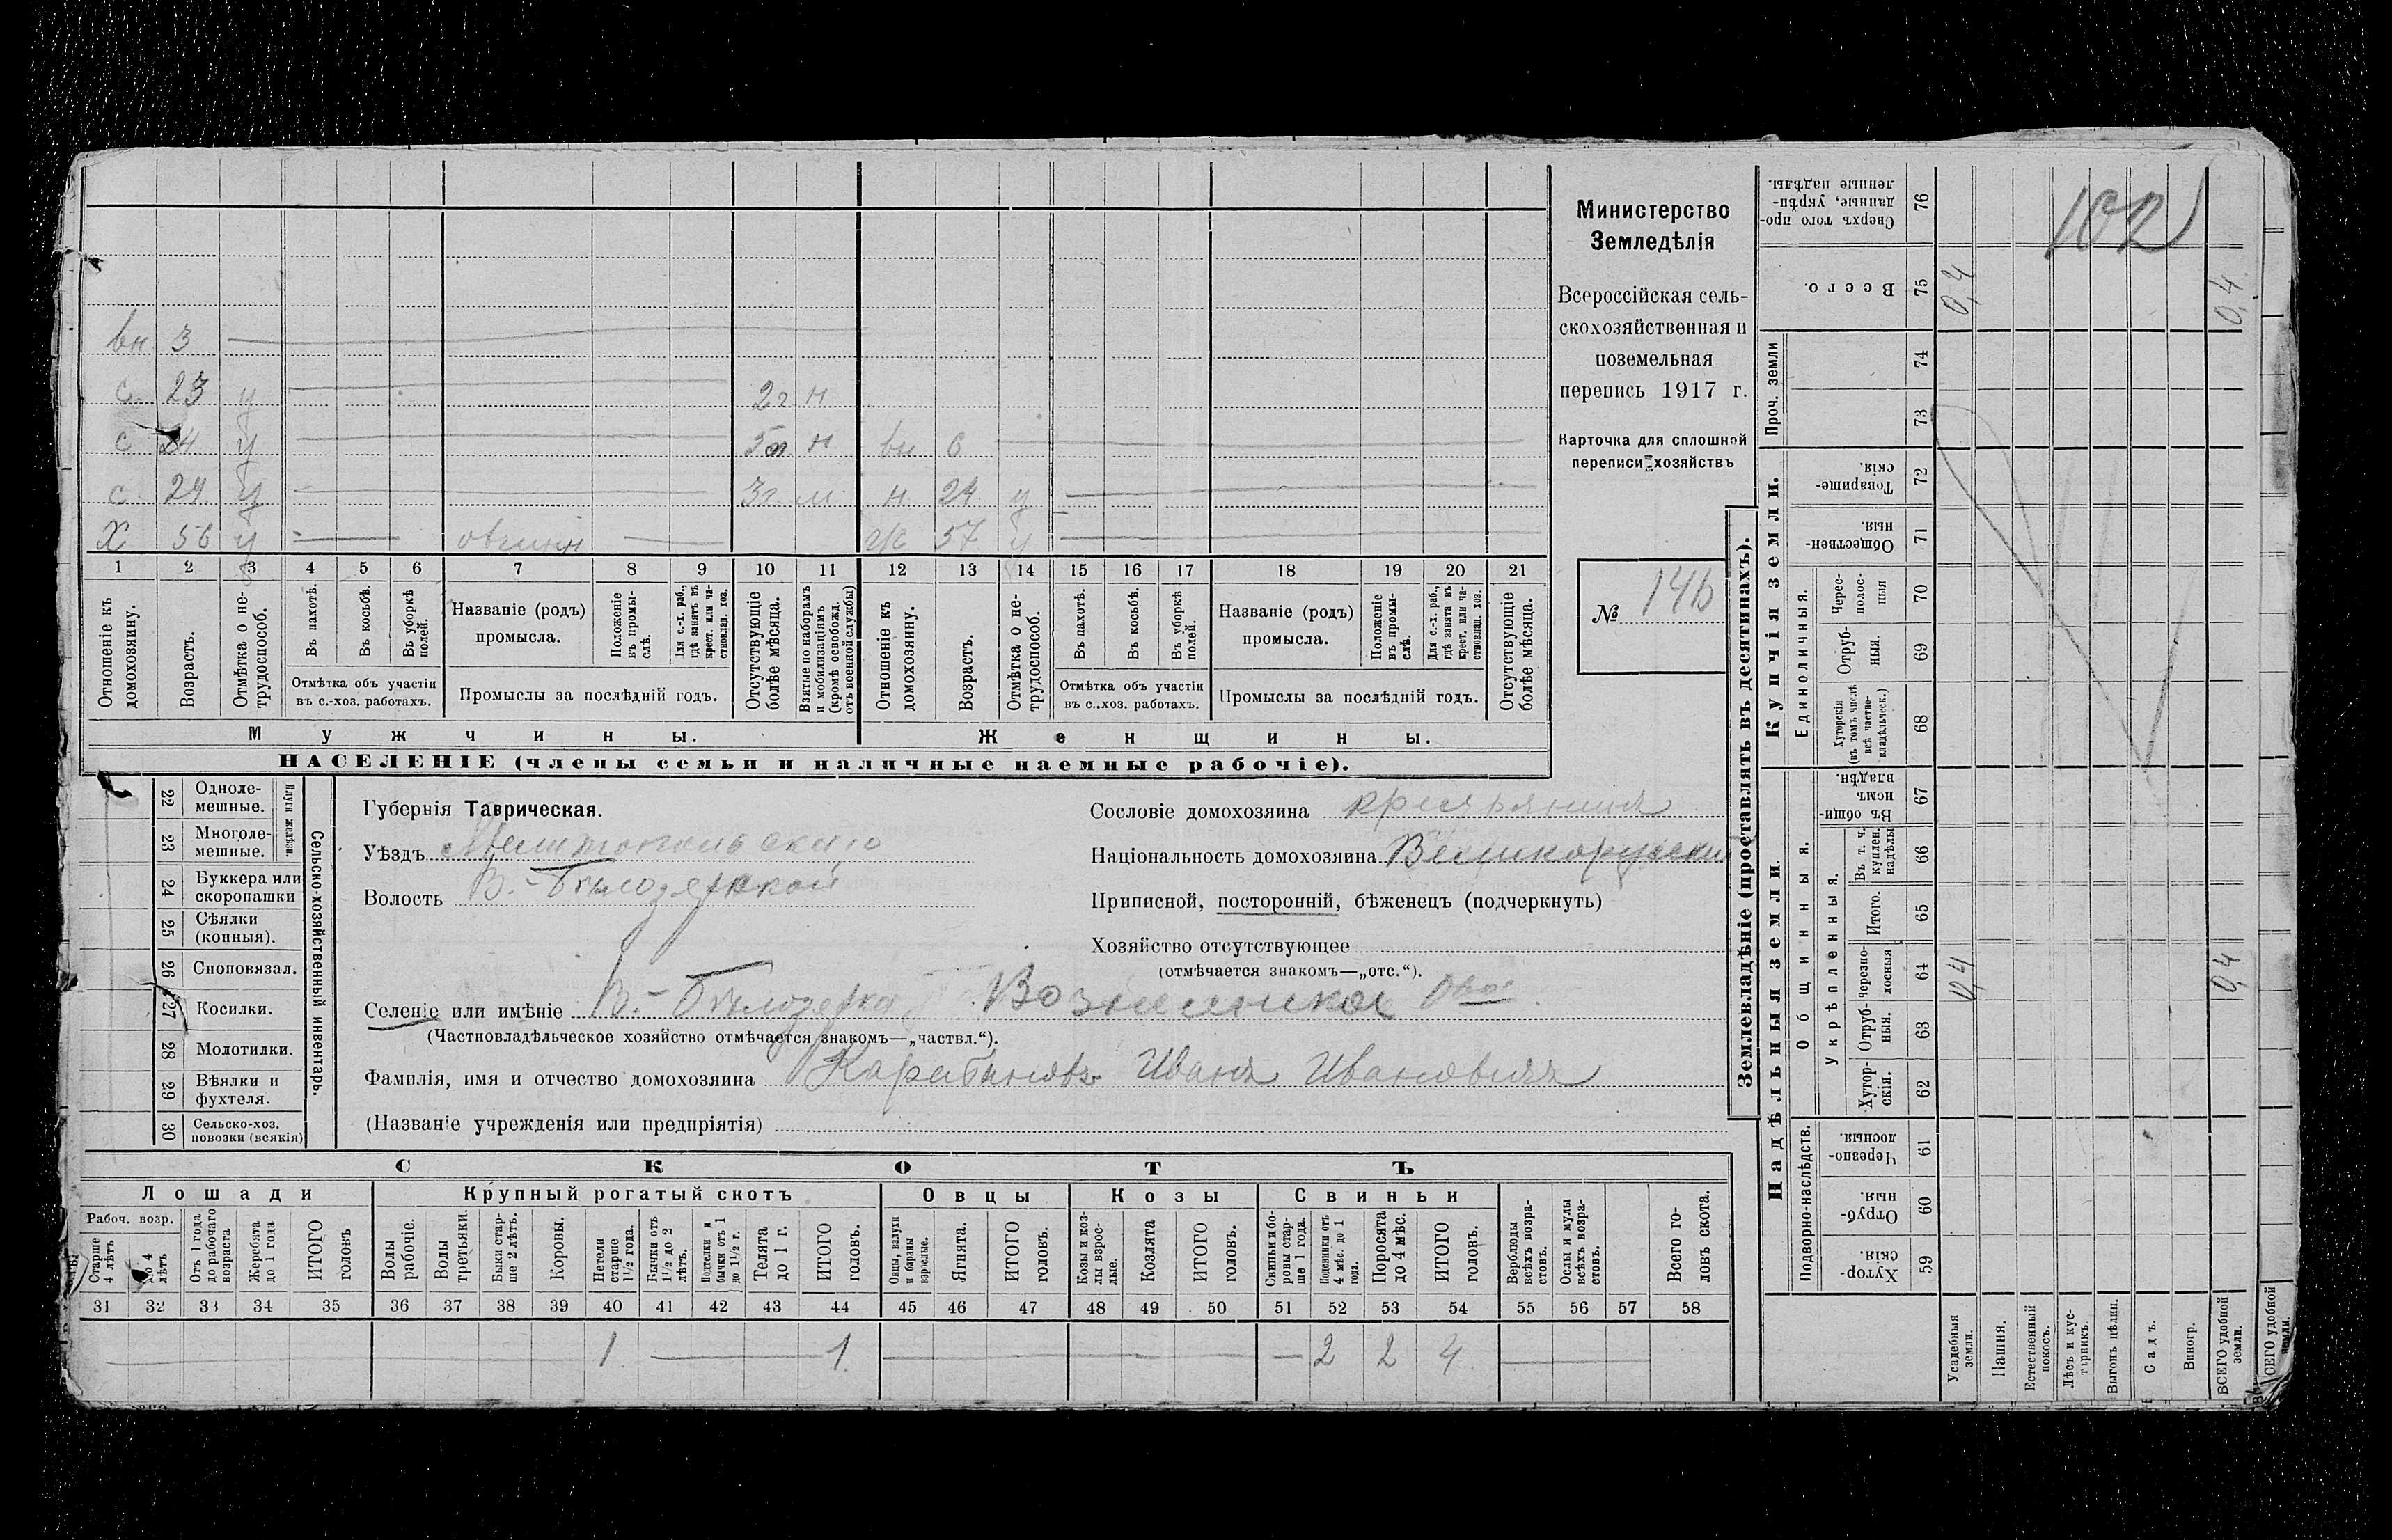 Министерство
Земледѣлія
Всероссійская сель-
скохозяйственная и
поземельная
перепись 1917 г.
Карточка для сплошной
переписи хозяйствъ
№ 14
102
вн 3
с 23 у 2г н
с 24 у 5 н вн 6
с 29 у 3г н 24 у
Х 56 у ж 57 у
1 2 3 4 5 6 7 8 9 10 11 12 13 14 15 16 17 18 19 20 21
Отношеніе къ домохозяину.
Возрастъ.
Отмѣтка о не-трудоспособ.
Въ пахотѣ.
Въ косьбѣ.
Въ уборкѣ полей.
Отмѣтка объ участіи
въ с.-хоз. работахъ.
Названіе (родъ)
промысла.
Положеніе въ промы-слѣ.
Для с.-х. раб., гдѣ занятъ въ крест. или ча-стновлад. хоз.
Промыслы за послѣдній годъ.
Отсутствующіе болѣе мѣсяца.
Взятые по наборамъ и мобилизаціямъ (кромѣ освобожд. отъ военной службы)
Отношеніе къ домохозяину.
Возрастъ.
Отмѣтка о не-трудоспособ.
Въ пахотѣ.
Въ косьбѣ.
Въ уборкѣ полей.
Отмѣтка объ участіи
въ с..хоз. работахъ.
Названіе (родъ)
промысла.
Положеніе въ промы-слѣ.
Для с.-х. раб., гдѣ занята въ крест. или ча-стновлад. хоз.
Промыслы за послѣдній годъ.
Отсутствующіе болѣе мѣсяца.
Мужчины.
Женщины.
НАСЕЛЕНІЕ (члены семьи и наличные наемные рабочіе).
22 Одноле-мешные.
23 Многоле-мешные.
Плуги желѣзн.
24 Буккера или скоропашки
25 Сѣялки (конныя).
26 Сноповязал.
27 Косилки.
28 Молотилки.
29 Вѣялки и фухтеля.
30 Сельско-хоз. повозки (всякія)
Сельско-хозяйственный инвентарь.
Губернія Таврическая.
Уѣздъ Мелитопольскаго
Волость В.-Бѣлозерской
Сословіе домохозяина крестьянинъ
Національность домохозяина Великорусскій
Приписной, посторонній, бѣженецъ (подчеркнуть)
Хозяйство отсутствующее
(отмѣчается знакомъ—„отс.“).
Селеніе или имѣніе В.-Бѣлозерка Вознесенское
(Частновладѣльческое хозяйство отмѣчается знакомъ—„частвл.“).
Фамилія, имя и отчество домохозяина Иванъ Ивановичъ
(Названіе учрежденія или предпріятія)
СКОТЪ
Лошади
Крупный рогатый скотъ
Овцы
Козы
Свиньи
Рабоч. возр.
Старше 4 лѣтъ
До 4 лѣтъ
Отъ 1 года до рабочаго возраста
Жеребята до 1 года
ИТОГО головъ
Волы рабочіе.
Волы третьяки.
Быки стар-ше 2 лѣтъ.
Коровы.
Нетели старше 1½ года.
Бычки отъ 1½ до 2 лѣтъ.
Подтелки и бычки отъ 1 до 1½ г.
Телята до 1 г.
ИТОГО головъ.
Овцы, валухи и бараны взрослые.
Ягнята.
ИТОГО головъ.
Козы и коз-лы взрос-лые.
Козлята
ИТОГО головъ.
Свиньи и бо-ровы стар-ше 1 года.
Подсвинки отъ 4 мѣс. до 1 года.
Поросята до 4 мѣс.
ИТОГО головъ.
Верблюды всѣхъ возра-стовъ.
Ослы и мулы всѣхъ возра-стовъ.
Всего го-ловъ скота.
31 32 33 34 35 36 37 38 39 40 41 42 43 44 45 46 47 48 49 50 51 52 53 54 55 56 57 58
1 1 2 2 4
Землевладѣніе (проставлять въ десятинахъ).
Купчія земли.
Надѣльныя земли.
Проч. земли
Единоличныя.
Общинныя.
Укрѣпленныя.
Подворно-наслѣдств.
Сверхъ того про-данные, укрѣп-ленные надѣлы. 76
Всего. 75 0,4 0,4
74
73
Товарище-скія. 72
Обществен-ныя. 71
Черес-полос-ныя 70
Отруб-ныя. 69
Хуторскія (въ томъ числѣ всѣ частно-владѣльческ.) 68
Въ общи-номъ владѣн. 67
Въ т. ч. куплен. надѣлы 66
Итого. 65
Черезпо-лосныя 64 0,4 0,4
Отруб-ныя. 63
Хутор-скія. 62
Черезпо-лосныя. 61
Отруб-ныя. 60
Хутор-скія. 59
Усадебныя земли.
Пашня.
Естественный покосъ.
Лѣсъ и кус-тарникъ.
Выгонъ цѣлин.
Садъ.
Виногр.
ВСЕГО удобной земли.
ВСЕГО удобной земли.